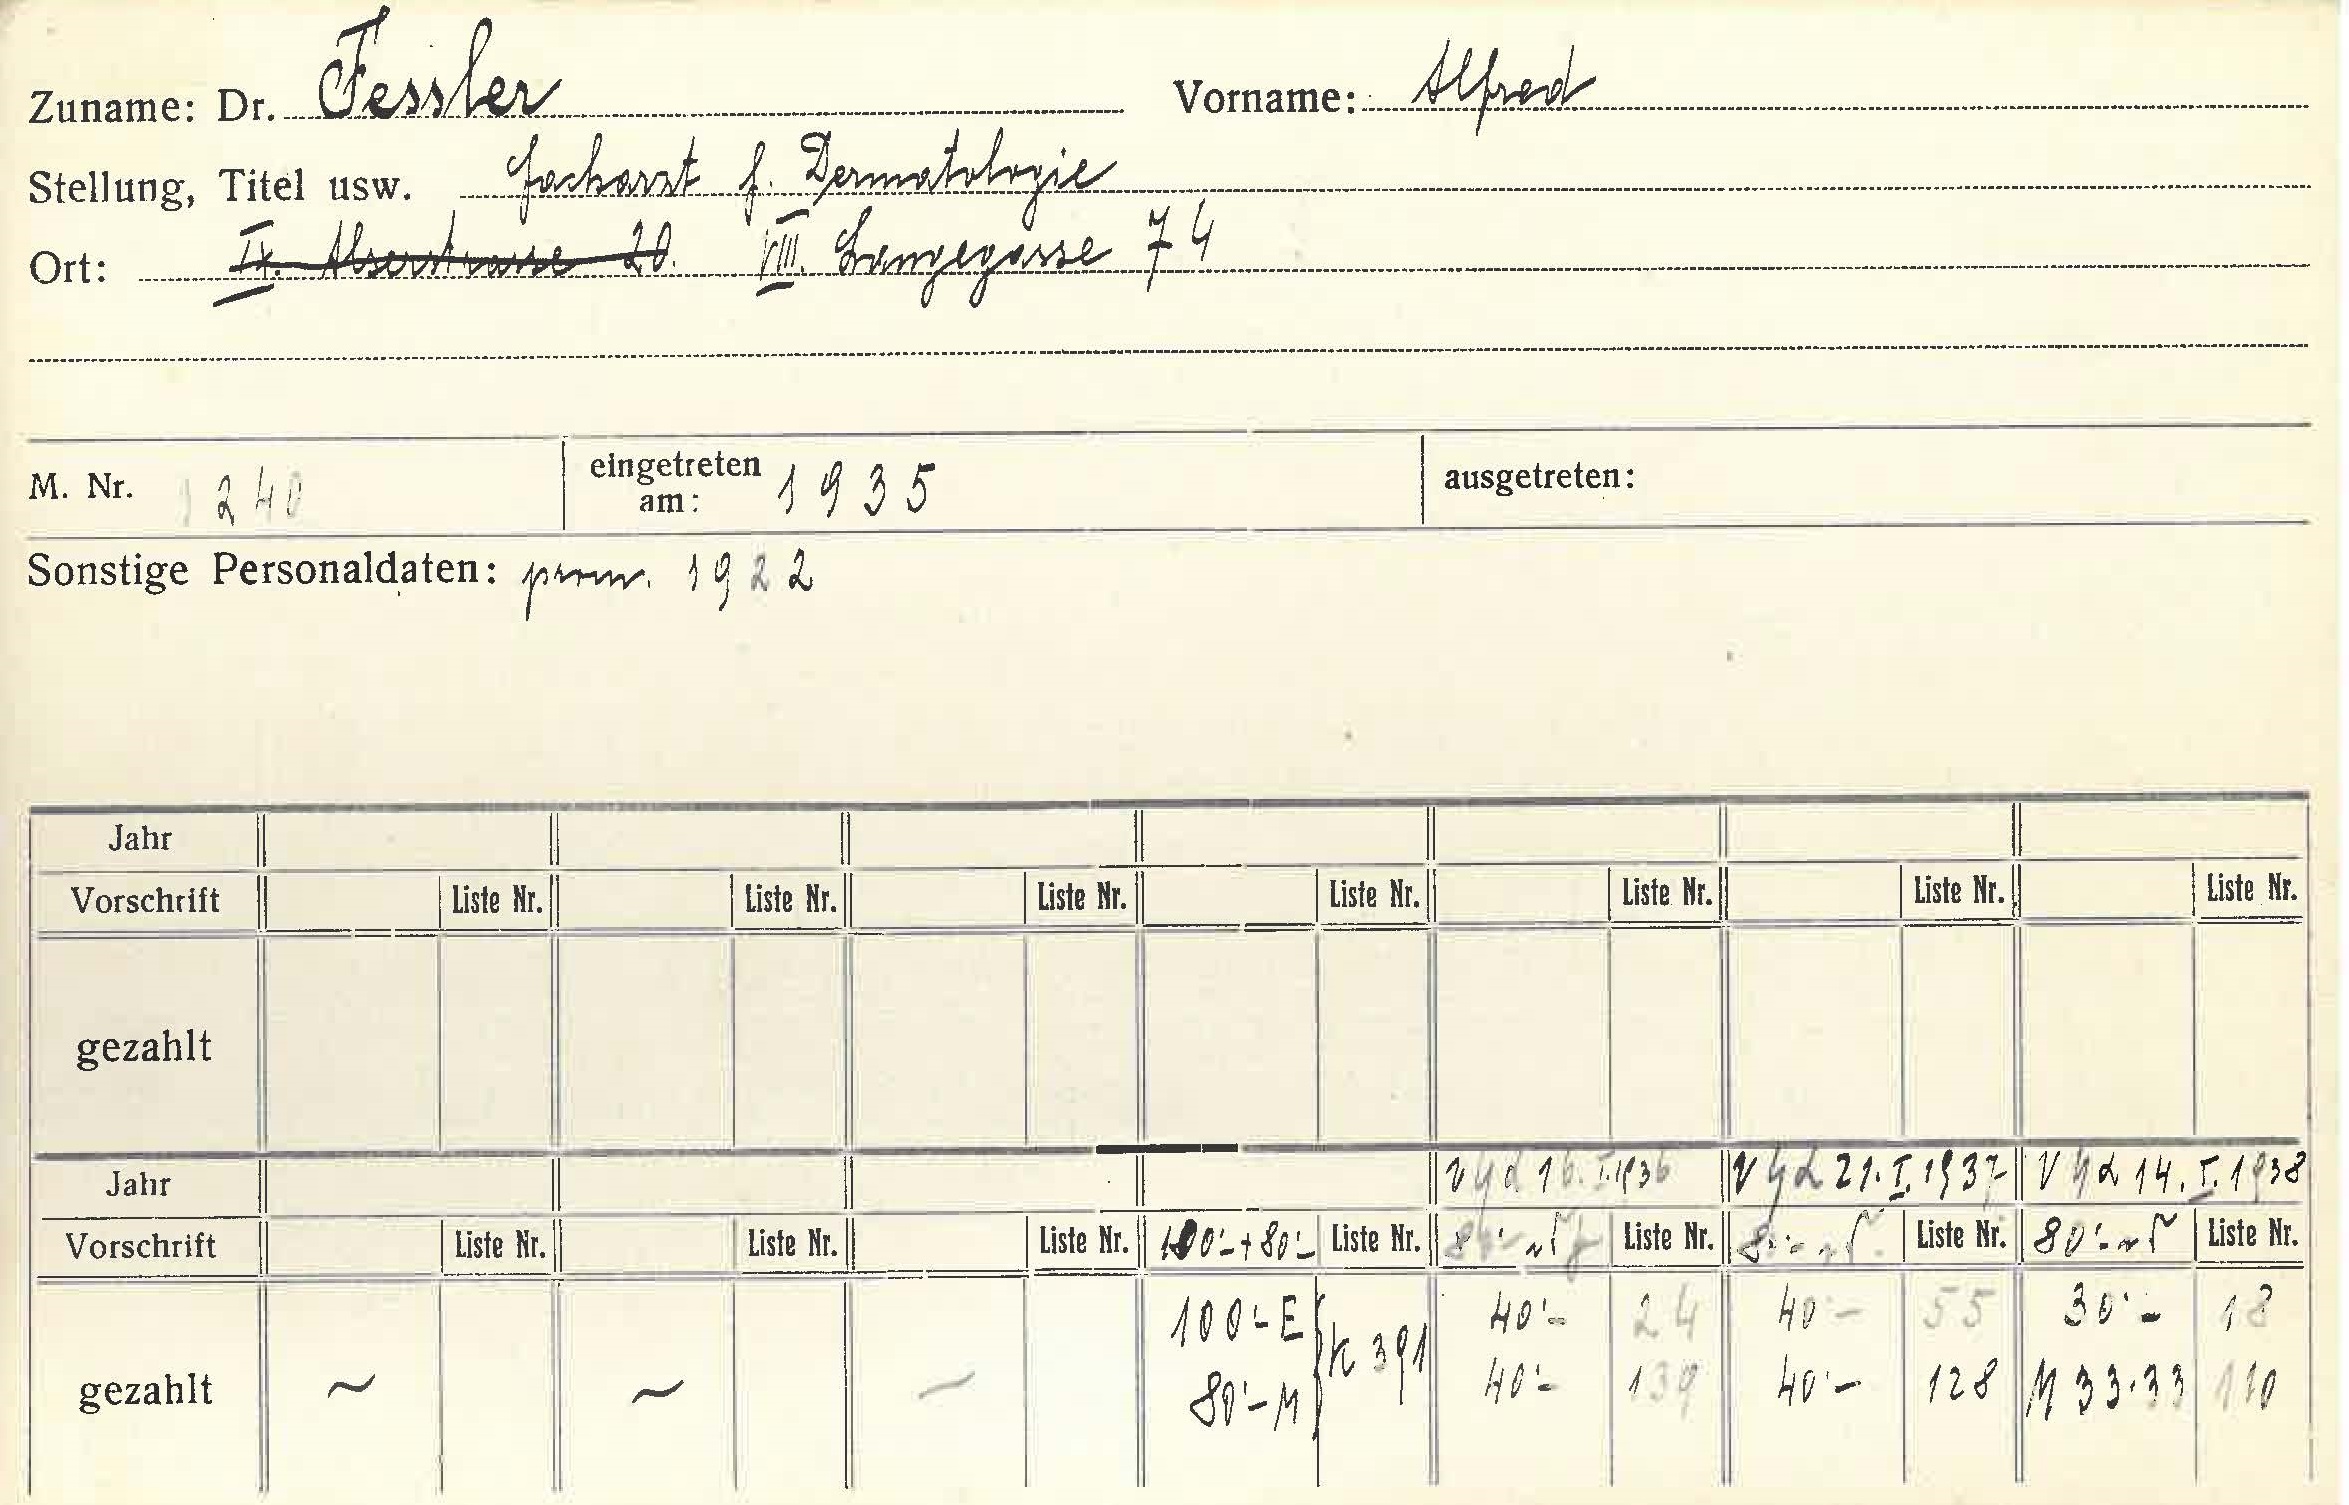 Zuname: Dr. Fessler Vorname: Alfred
Stellung, Titel usw. Facharzt f. Dermatologie
Ort: IX. Alserstrasse 20. VIII. Langegasse 74
M. Nr. 1240 eingetreten am: 1935 ausgetreten:
Sonstige Personaldaten: prom. 1922
Jahr
Vorschrift Liste Nr. Liste Nr. Liste Nr. Liste Nr. Liste Nr. Liste Nr. Liste Nr.
gezahlt
Jahr 16.I.1936 21.I.1937 14.I.1938
Vorschrift Liste Nr. Liste Nr. Liste Nr. 100'- + 80'- Liste Nr. Liste Nr. Liste Nr. 80'- Liste Nr.
100'- E 40'- 24 40'- 55 30'- 18
K 391
gezahlt ~ ~ ~ 80'- M 40'- 139 40'- 128 M 33.33 110